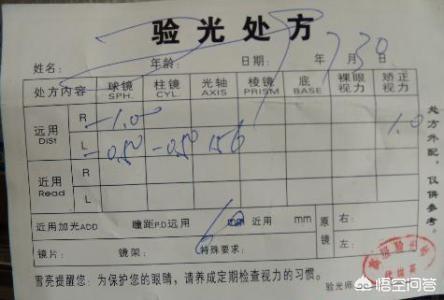 验光处方
姓名: 年龄: 日期: 年 7月30日
处方内容 球镜 SPH. 柱镜 CYL. 光轴 AXIS 棱镜 PRISM 底 BASE 裸眼视力 矫正视力
远用 Dist R -1.00 1.0
L -0.50 -0.50 156
近用 Read R
L
近用加光ADD 瞳距P.D远用 60 mm 近用 mm 原镜 右:
镜片: 镜架: 特殊要求: 左:
雪亮提醒您:为保护您的眼睛,请养成定期检查视力的习惯。
验光师
处方外配,仅供参考。
悟空问答